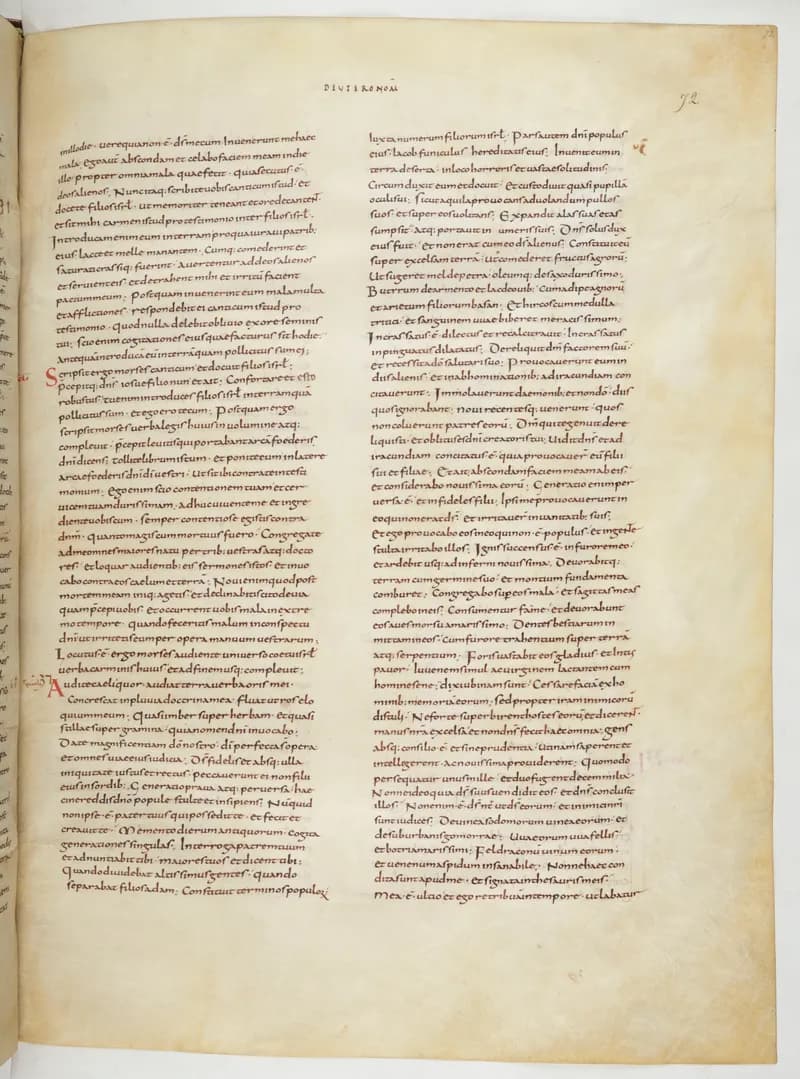 DEUTERONOM̄
72
in illo die · vere quia non ē d̄s mecum Invenerunt me haec
mala · ego aut̄ abscondam et celabo faciem meam in die
illo propter omnia mala quae fecit · quia secutus ē
deos alienos ; Nunc itaq; scribite vobis canticum istud · et
docete filios isrl̄ · ut memoriter teneant et ore decantent
et sit mihi carmen istud pro testimonio inter filios isrl̄ ·
Introducam enim eum in terram pro qua iuravi patrib;
eius · lacte et melle manantem · Cumq; comederint et
saturati crassiq; fuerint · avertentur ad deos alienos
et servient eis · et detrahent mihi et irritū facient
pactum meum ; Postquam invenerint eum mala multa
et afflictiones · respondebit ei canticum istud pro
testimonio · quod nulla delebit oblivio ex ore seminis
tui ; scio enim cogitationes eius quae facturus sit hodie ·
antequā introducā eū in terrā quam pollicitus sum ei ;
Scripsit ergo moyses canticum et docuit filios isrl̄ ;
p̄cepitq; dn̄s iosue filio nun et ait ; Confortare et esto
robustus · tu enim introduces filios isrl̄ in terram quā
pollicitus sum · et ego ero tecum ; Postquam ergo
scripsit moyses verba legis huius in volumine atq;
complevit · p̄cepit levitis qui portabant arcā foederis
dn̄i dicens ; tollite librum istum · et ponite eum in latere
arcae foederis dn̄i dī vestri · Ut sit ibi contra te in testi
monium ; Ego enim scio contentionem tuam et cer
vicem tuam durissimam ; adhuc vivente me et ingre
diente vobiscum · semper contentiose egistis contra
dn̄m · quanto magis cum mortuus fuero · Congregate
ad me omnes maiores natu per trib; vestras atq; docto
res · et loquar audientib; eis sermones istos · et invo
cabo contra eos caelum et terrā ; Novi enim quod post
mortem meam iniq; agetis · et declinabitis cito de via
quam p̄cepi vobis · et occurrent vobis mala in extre
mo tempore · quando feceritis malum in conspectu
dn̄i ut irritetis eum per opera manuum vestrarum ;
Locutus ē ergo moyses audiente universo coetu isrl̄
verba carminis huius et ad finem usq; complevit ;
Audite caeli quae loquor · audiat terra verba oris mei ·
Concrescat in pluvia doctrina mea · fluat ut ros elo
quium meum ; Quasi imber super herbam · et quasi
stillae super gramina · quia nomen dn̄i invocabo ·
Date magnificentiam dō nostro · dī perfecta s̄ opera
et omnes viae eius iudicia ; D̄s fidelis et absq; ulla
iniquitate iustus et rectus · peccaverunt ei non filii
eius in sordib; Generatio prava atq; perversa · hae
cine reddis dn̄o popule stulte et insipiens ; Nūquid
non ipse ē pater tuus qui possedit te · et fecit et
creavit te · Memento dierum antiquorum · cogita
generationes singulas ; Interroga patrem tuum
et adnuntiabit tibi · maiores tuos et dicent tibi ;
Quando dividebat altissimus gentes · quando
separabat filios adam ; Constituit terminos populoꝝ
Iuxta numerum filiorum isrl̄ · Pars autem dn̄i populus
eius · Iacob funiculus hereditatis eius ; Invenit eum in
terra deserta · in loco horroris et vastae solitudinis ·
Circumduxit eum et docuit · Et custodivit quasi pupillā
oculi sui ; Sicut aquila provocans ad volandum pullos
suos · et super eos volitans ; Expandit alas suas et as
sumpsit · atq; portavit in umeris suis ; Dn̄s solus dux
eius fuit · Et non erat cum eo d̄s alienus ; Constituit eū
super excelsam terrā · ut comederet fructus agrorū ;
Ut sugeret mel de petra · oleumq; de saxo durissimo ;
Butyrum de armento et lac de ovib; Cum adipe agnorū
et arietum filiorum basan · Et hircos cum medulla
tritici · et sanguinem uvae biberet meracissimum ;
Incrassatus ē dilectus et recalcitravit · Incrassatus
inpinguatus dilatatus ; Dereliquit dn̄m factorem suū
et recessit a dō salutari suo ; Provocaverunt eum in
diis alienis · et in abhominationib; ad iracundiam con
citaverunt ; Immolaverunt daemonib; et non dō · diis
quos ignorabant ; novi recentesq; venerunt · quos
non coluerunt patres eorū ; Dm̄ qui te genuit dere
liquisti · et oblitus es dn̄i creatoris tui ; Vidit dn̄s et ad
iracundiam concitatus ē · quia provocaver̄ eū filii
sui et filiae ; Et ait ; abscondam faciem meam ab eis ·
et considerabo novissima eorū ; Generatio enim per
versa ē · et infideles filii ; Ipsi me provocaverunt in
eo qui non erat d̄s · Et irritaver̄ in vanitatib; suis ;
Et ego provocabo eos in eo qui non ē populus · et in gente
stulta irritabo illos ; Ignis succensus ē in furore meo ·
et ardebit usq; ad inferni novissima ; Devorabitq;
terram cum germine suo · et montium fundamenta
comburet ; Congregabo sup̄ eos mala · et sagittas meas
complebo in eis ; Consumentur fame · et devorabunt
eos aves morsu amarissimo ; Dentes bestiarum in
mittam in eos · Cum furore trahentium super terrā
atq; serpentium · Foris vastabit eos gladius · et intus
pavor · Iuvenem simul ac virginem · lactantem cum
homine sene ; dixi ubinam sunt · Cessare faciā ex ho
minib; memoriā eorum ; sed propter iram inimicorū
distuli ; Ne forte superbirent hostes eorū · et dicerent ·
manus nr̄a excelsa et non dn̄s fecit haec omnia ; gens
absq; consilio ē et sine prudentia · Utinam saperent et
intellegerent · ac novissima providerent ; Quomodo
persequatur unus mille · et duo fugent decem milia ·
Nonne ideo quia d̄s suus vendidit eos · et dn̄s conclusit
illos ; Non enim ē d̄s nr̄ ut dī eorum · et inimici nr̄i
sunt iudices · De vinea sodomorum vinea eorum · et
de suburbanis gomorrae ; Uva eorum uva fellis ·
et botri amarissimi ; Fel draconū vinum eorum ·
et venenum aspidum insanabile ; Nonne haec con
dita sunt apud me · Et signata in thesauris meis ·
Mea ē ultio et ego retribuā in tempore · ut labatur